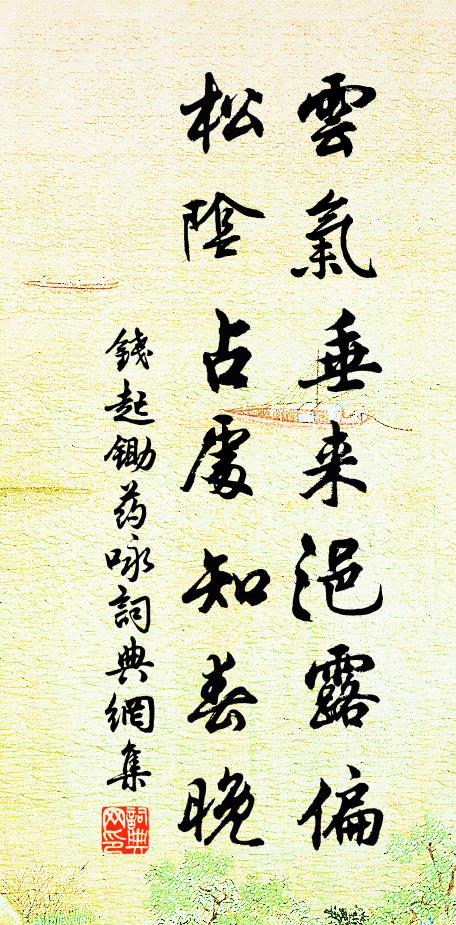 雲氣垂来浥露偏
松陰占處知春晚
錢起鋤药咏詞典網集
詞典網印